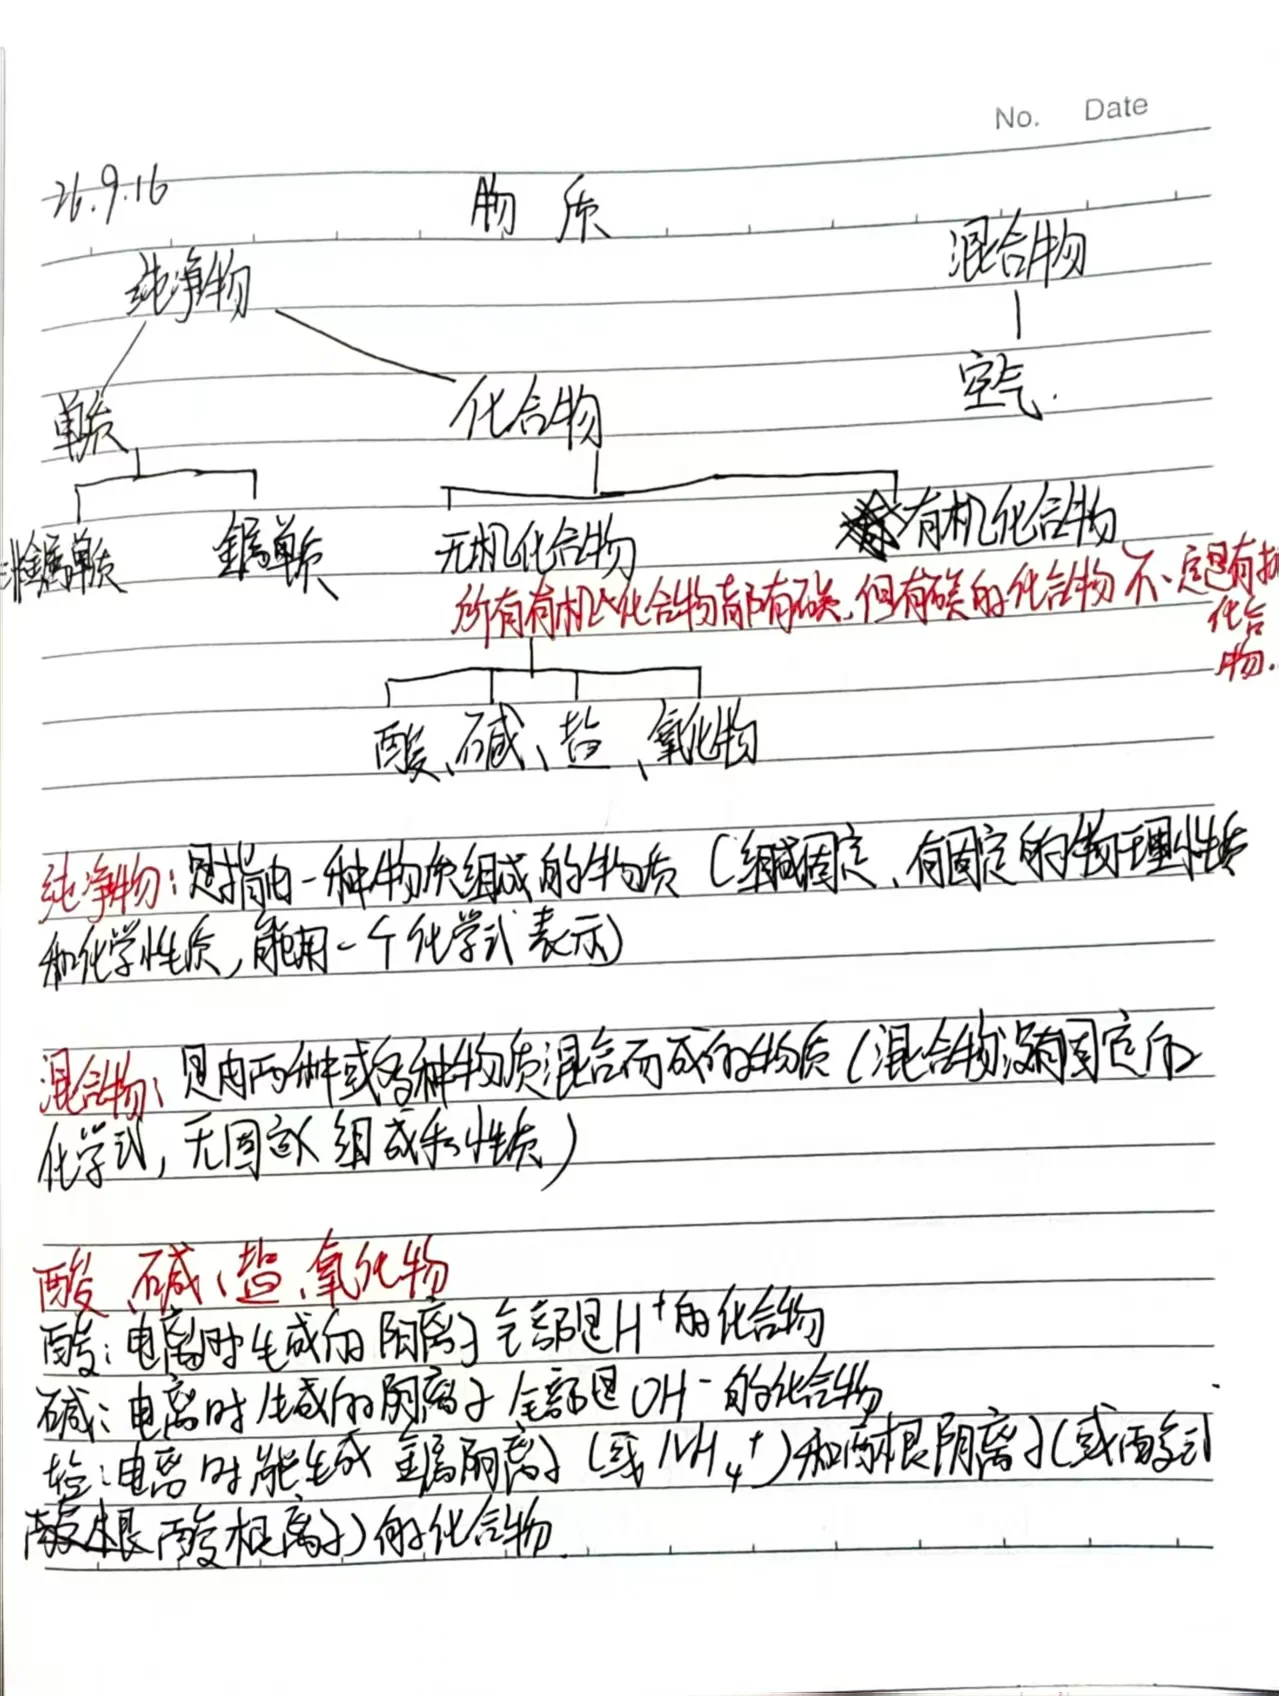 No. Date
26.9.16
物 质
纯净物 混合物
空气.
单质 化合物
非金属单质 金属单质 无机化合物 有机化合物
所有有机化合物都有碳,但有碳的化合物不一定是有机
化合
物.
酸、碱、盐、氧化物
纯净物:是指由一种物质组成的物质(组成固定、有固定的物理性质
和化学性质,能用一个化学式表示)
混合物:是由两种或多种物质混合而成的物质(混合物没有固定的
化学式,无固定组成和性质)
酸、碱、盐、氧化物
酸:电离时生成的阳离子全部是H⁺的化合物
碱:电离时生成的阴离子全部是OH⁻的化合物
盐:电离时能生成金属阳离子(或NH₄⁺)和酸根阴离子(或酸式
酸根离子)的化合物